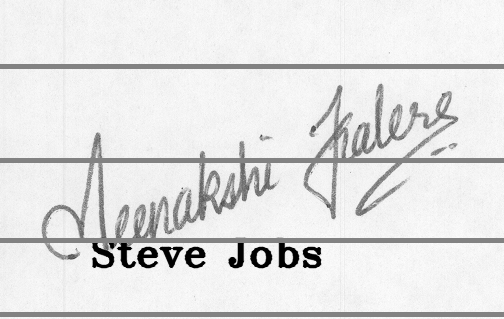 Meenakshi Jialere
Steve Jobs